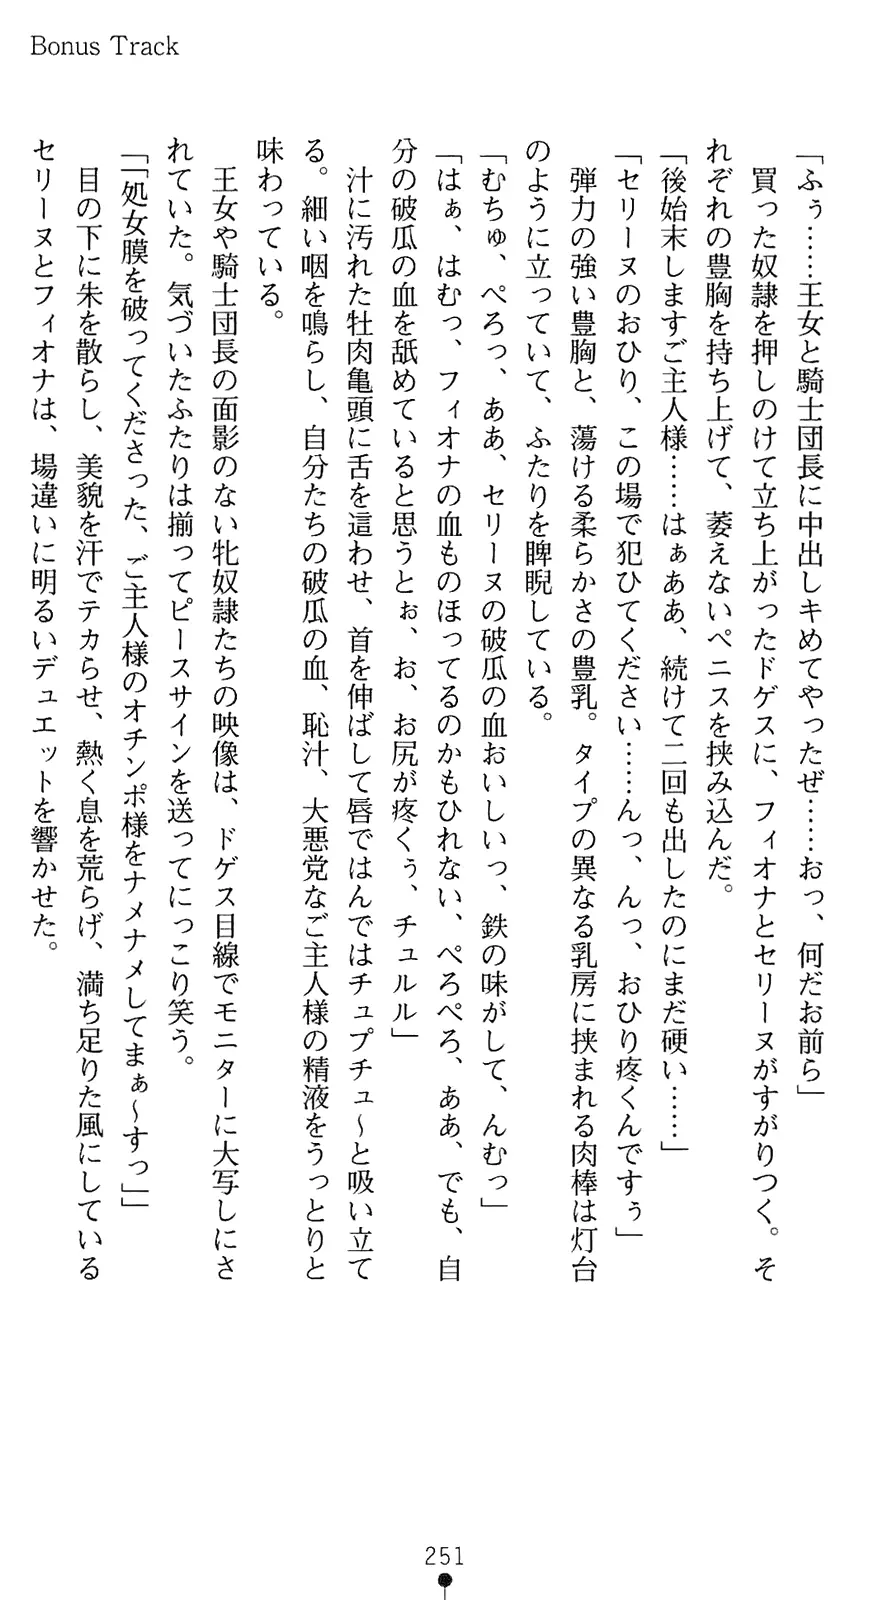 Bonus Track
「ふぅ……王女と騎士団長に中出しキめてやったぜ……おっ、何だお前ら」
買った奴隷を押しのけて立ち上がったドゲスに、フィオナとセリーヌがすがりつく。そ
れぞれの豊胸を持ち上げて、萎えないペニスを挟み込んだ。
「後始末しますご主人様……はぁああ、続けて二回も出したのにまだ硬い……」
「セリーヌのおひり、この場で犯ひてください……んっ、んっ、おひり疼くんですぅ」
弾力の強い豊胸と、蕩ける柔らかさの豊乳。タイプの異なる乳房に挟まれる肉棒は灯台
のように立っていて、ふたりを睥睨している。
「むちゅ、ぺろっ、ああ、セリーヌの破瓜の血おいしいっ、鉄の味がして、んむっ」
「はぁ、はむっ、フィオナの血ものほってるのかもひれない、ぺろぺろ、ああ、でも、自
分の破瓜の血を舐めていると思うとぉ、お、お尻が疼くぅ、チュルル」
汁に汚れた牡肉亀頭に舌を這わせ、首を伸ばして唇ではんではチュプチュ～と吸い立て
る。細い咽を鳴らし、自分たちの破瓜の血、恥汁、大悪党なご主人様の精液をうっとりと
味わっている。
王女や騎士団長の面影のない牝奴隷たちの映像は、ドゲス目線でモニターに大写しにさ
れていた。気づいたふたりは揃ってピースサインを送ってにっこり笑う。
「「処女膜を破ってくださった、ご主人様のオチンポ様をナメナメしてまぁ～すっ」」
目の下に朱を散らし、美貌を汗でテカらせ、熱く息を荒らげ、満ち足りた風にしている
セリーヌとフィオナは、場違いに明るいデュエットを響かせた。
251